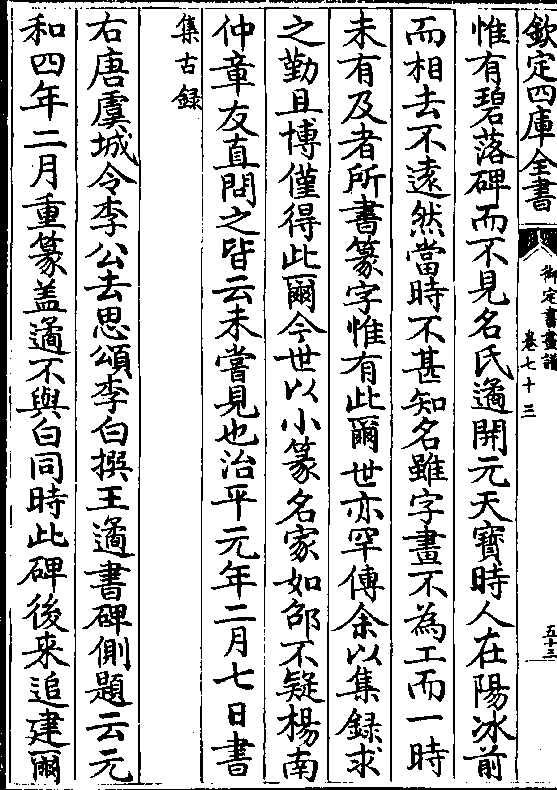 欽定四庫全書
御定書畫譜
卷七十三
五十三
惟有碧落碑而不見名氏遹開元天寶時人在陽冰前
而相去不遠然當時不甚知名雖字畫不為工而一時
未有及者所書篆字惟有此爾世亦罕傳余以集録求
之勤且博僅得此爾今世以小篆名家如邵不疑楊南
仲章友直問之皆云未嘗見也治平元年二月七日書
集古録
右唐虞城令李公去思頌李白撰王遹書碑側題云元
和四年二月重篆蓋遹不與白同時此碑後来追建爾